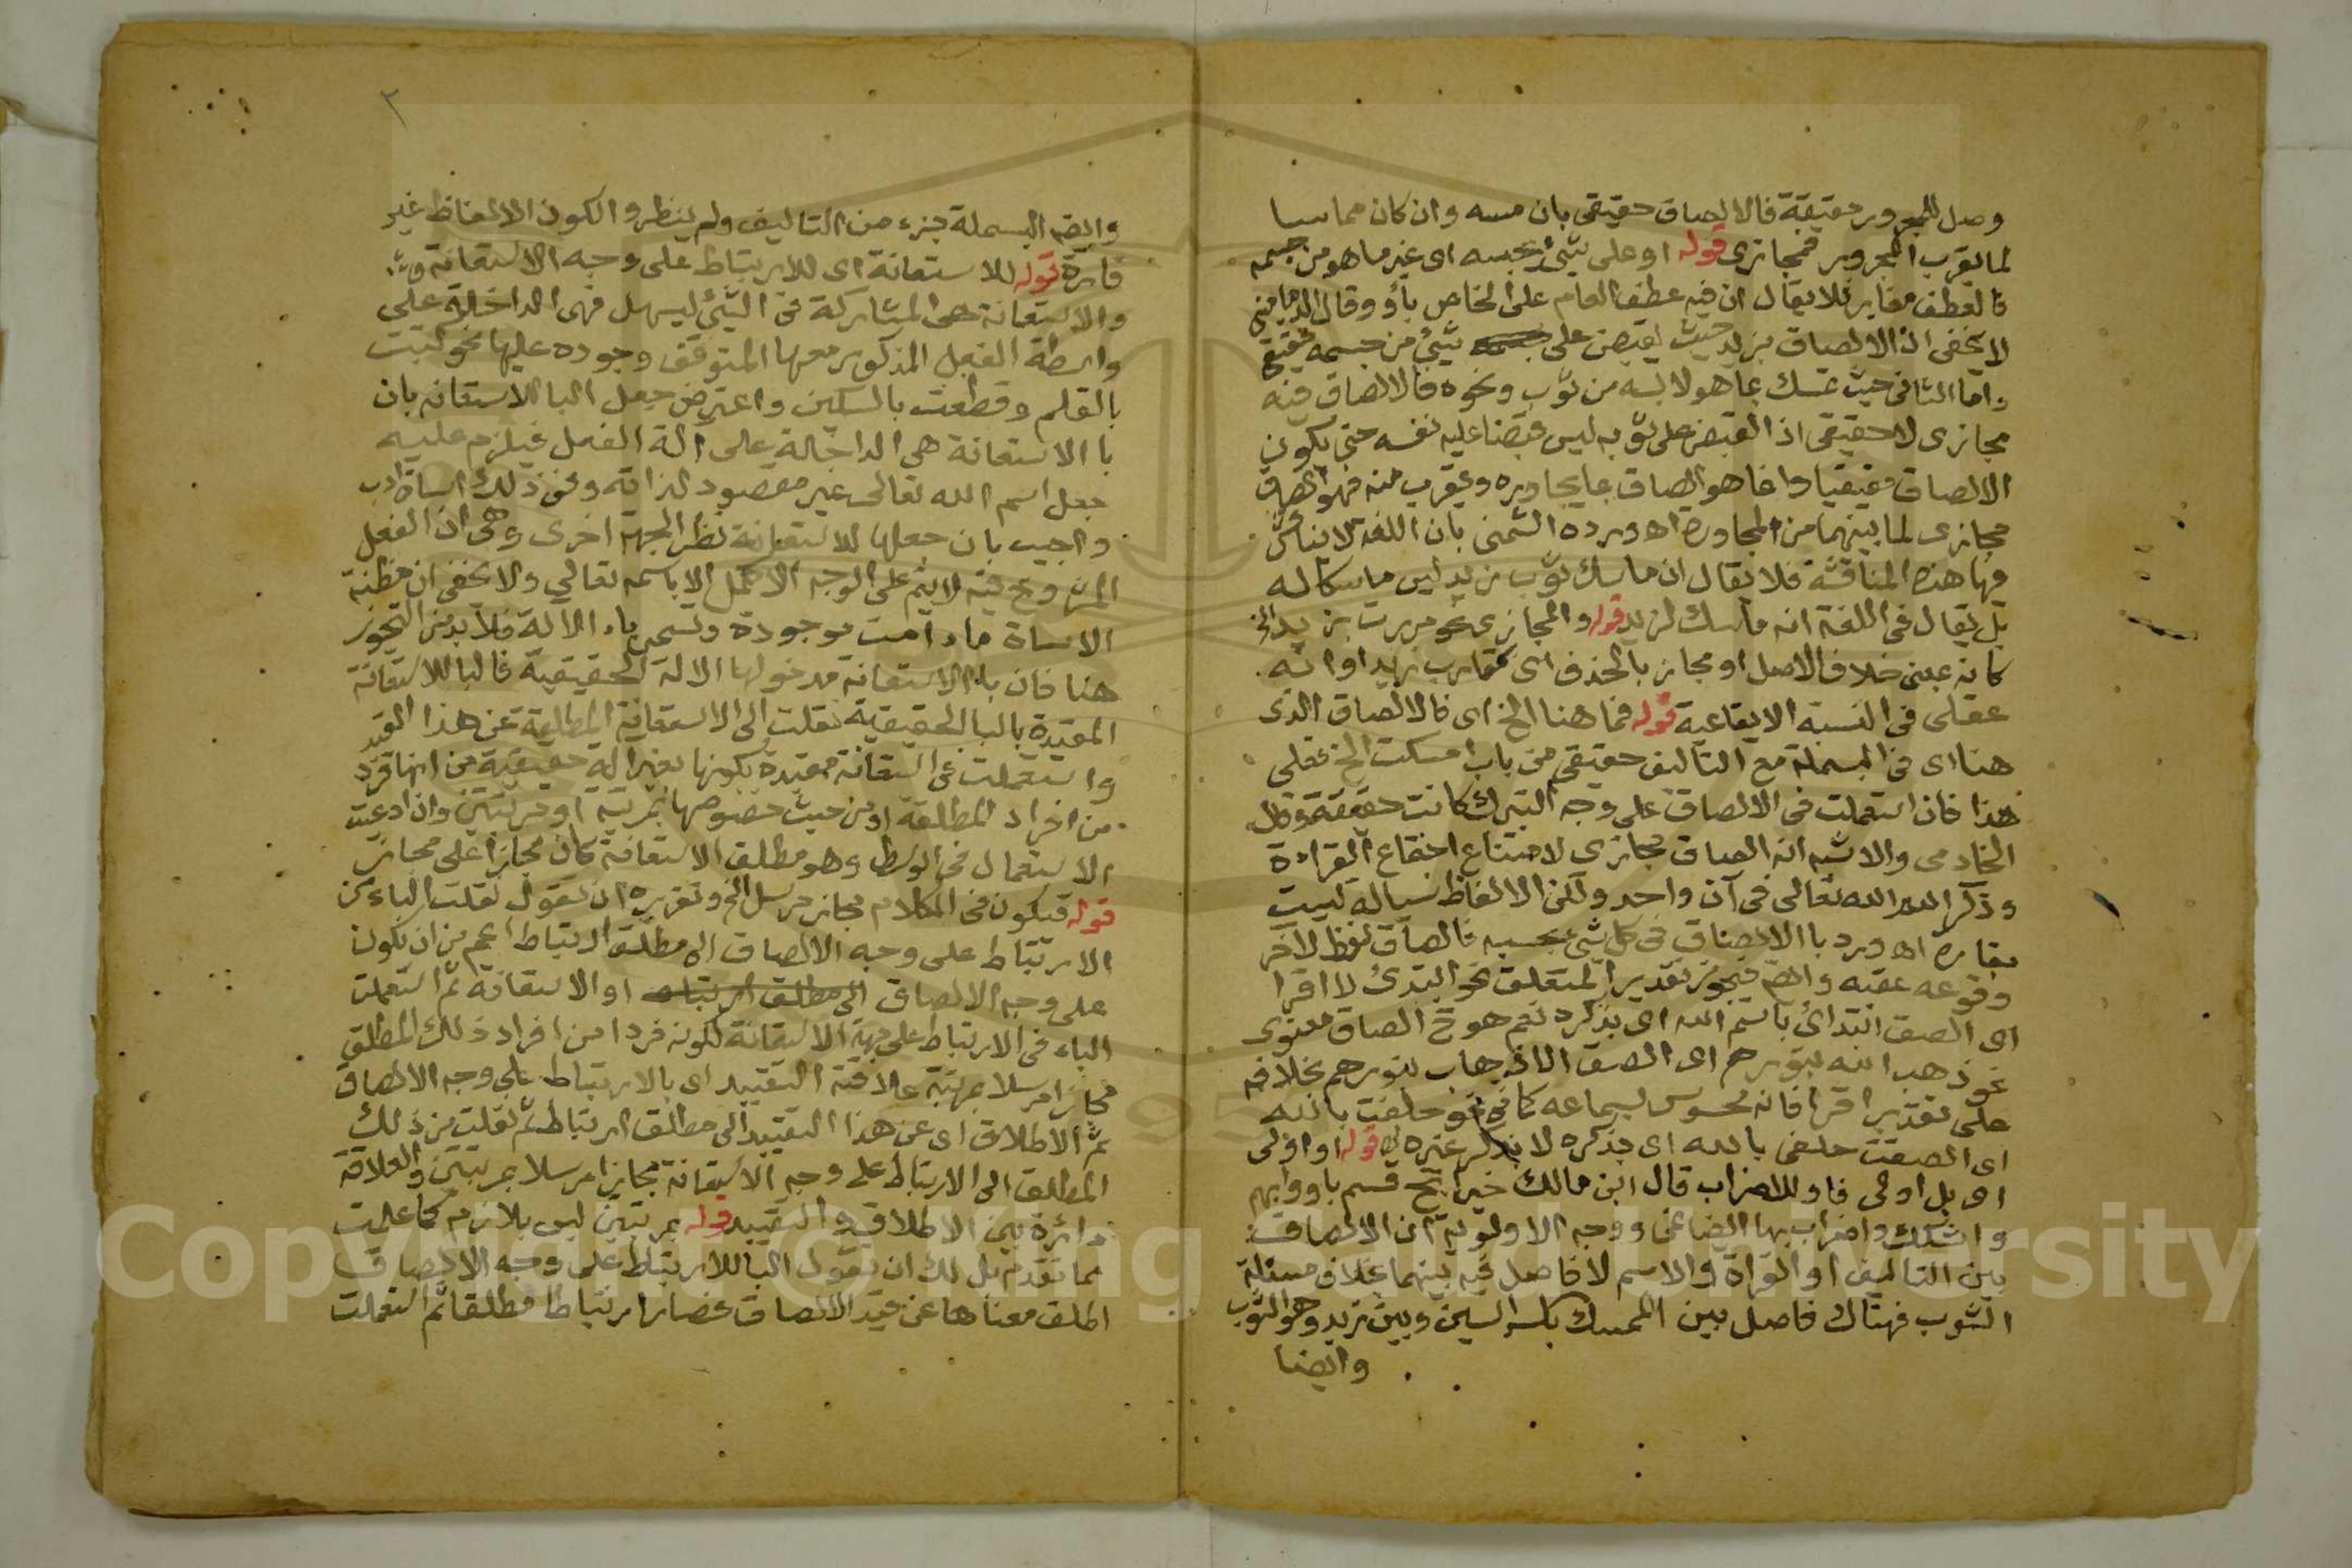 وصل للمجرور حقيقة فالالصاق حقيقي بان مسه وان كان مماسا
لما يقرب المجرور فمجازى قوله او على شئ يحبسه اى غير ما هو من جسمه
فالعطف مغاير فلا يقال ان فيه عطف العام على الخاص بأو وقال الدمامينى
لا يخفى ان الالصاق بزيد حيث يقبض على شئ من جسمه حقيقى
واما الثانى حيث تمسك بما هو لابسه من ثوب ونحوه فالالصاق فيه
مجازى لا حقيقى اذ القبض على ثوبه ليس قبضا عليه نفسه حتى يكون
الالصاق حقيقيا وانما هو الصاق بما يجاوره ويقرب منه فهو الصاق
مجازى لما بينهما من المجاورة اه ورده الشمنى بان اللغة لا يناقش
فيها هذه المناقشة فلا يقال ان ماسك ثوب زيد ليس ماسكا له
بل يقال فى اللغة انه ماسك لزيد قوله والمجازى نحو مررت بزيد الخ
كانه بمعنى خلاف الاصل او مجاز بالحذف اى بمقارب زيد او انه
عقلى فى النسبة الايقاعية قوله فما هنا الخ اى فالالصاق الذى
هنا اى فى البسملة مع التاليف حقيقى من باب امسكت الخ فعلى
هذا فان استعملت فى الالصاق على وجه التبرك كانت حقيقة وقال
الخادمى والاشبه انه الصاق مجازى لامتناع اجتماع القراءة
وذكر الله تعالى فى آن واحد ولكن الالفاظ سيالة ليست
بقارة اه ورد با الالصاق فى كل شئ بحسبه فالصاق لفظ لاخر
وقوعه عقبه وايضا فيجوز تقدير المتعلق نحو ابتدئ لا اقرا
اى الصق ابتدائ باسم الله اى بذكره نعم هو ح الصاق معنوى
نحو ذهب الله بنورهم اى الصق الاذهاب بنورهم بخلافه
على تقدير اقرا فانه محسوس بسماعه كما فى نحو حلفت بالله
اى الصقت حلفى بالله اى بذكره لا بذكر غيره قوله او اولى
اى بل اولى فاو للاضراب قال ابن مالك خير ابح قسم باو وابهم
واشكك واضراب بها ايضا نمى ووجه الاولوية ان الالصاق
بين التاليف او القراة والاسم لا فاصل فيه بينهما بخلاف مسئلة
الثوب فهناك فاصل بين الممسك بكسر السين وبين زيد وهو الثوب
وايضا
٢
وايضا البسملة جزء من التاليف ولم ينظروا لكون الالفاظ غير
قارة قوله للاستعانة اى للارتباط على وجه الاستعانة
والاستعانة هى المشاركة فى الشئ ليسهل فهى الداخلة على
واسطة الفعل المذكور معها المتوقف وجوده عليها نحو كتبت
بالقلم وقطعت بالسكين واعترض جعل البا للاستعانه بان
با الاستعانة هى الداخلة على آلة الفعل فيلزم عليه
جعل اسم الله تعالى غير مقصود لذاته وفى ذلك اساة ادب
واجيب بان جعلها للاستعانة نظر الجهة اخرى وهى ان الفعل
المشروع فيه لا يتم على الوجه الاكمل الا باسمه تعالى ولا يخفى ان مظنة
الاساة ما دامت موجودة وتسمى باء الالة فلا بد من التجوز
هنا فان باء الاستعانة مدخولها الالة الحقيقية فالبا للاستعانة
المقيدة بالبا الحقيقية نقلت الى الاستعانة المطلقة عن هذا القيد
واستعملت فى استعانة مقيدة بكونها بغير الة حقيقية من انها فرد
من افراد المطلقة او من حيث خصوصها بمرتبة او مرتبتين وان ادعيت
الاستعمال فى الوسط وهو مطلق الاستعانة كان مجازا على مجاز
قوله فيكون فى الكلام مجاز مرسل الخ وتقريره ان تقول نقلت الباء من
الارتباط على وجه الالصاق الى مطلق ارتباط اعم من ان يكون
على وجه الالصاق الى مطلق ارتباط او الاستعانة ثم استعملت
الباء فى الارتباط على جهة الاستعانة لكونه فردا من افراد ذلك المطلق
مجازا مرسلا بمرتبة علاقته التقييد اى بالارتباط على وجه الالصاق
ثم الاطلاق اى عن هذا التقييد الى مطلق ارتباط ثم نقلت من ذلك
المطلق الى الارتباط على وجه الاستعانة مجازا مرسلا بمرتبتين والعلاقة
دائرة بين الاطلاق والتقييد قوله بمرتبتين ليس بلازم كما علمت
مما تقدم بل لك ان تقول البا للارتباط على وجه الالصاق
اطلق معناها عن قيد الالصاق فصار ارتباطا مطلقا ثم استعملت
Copyright © King Saud University